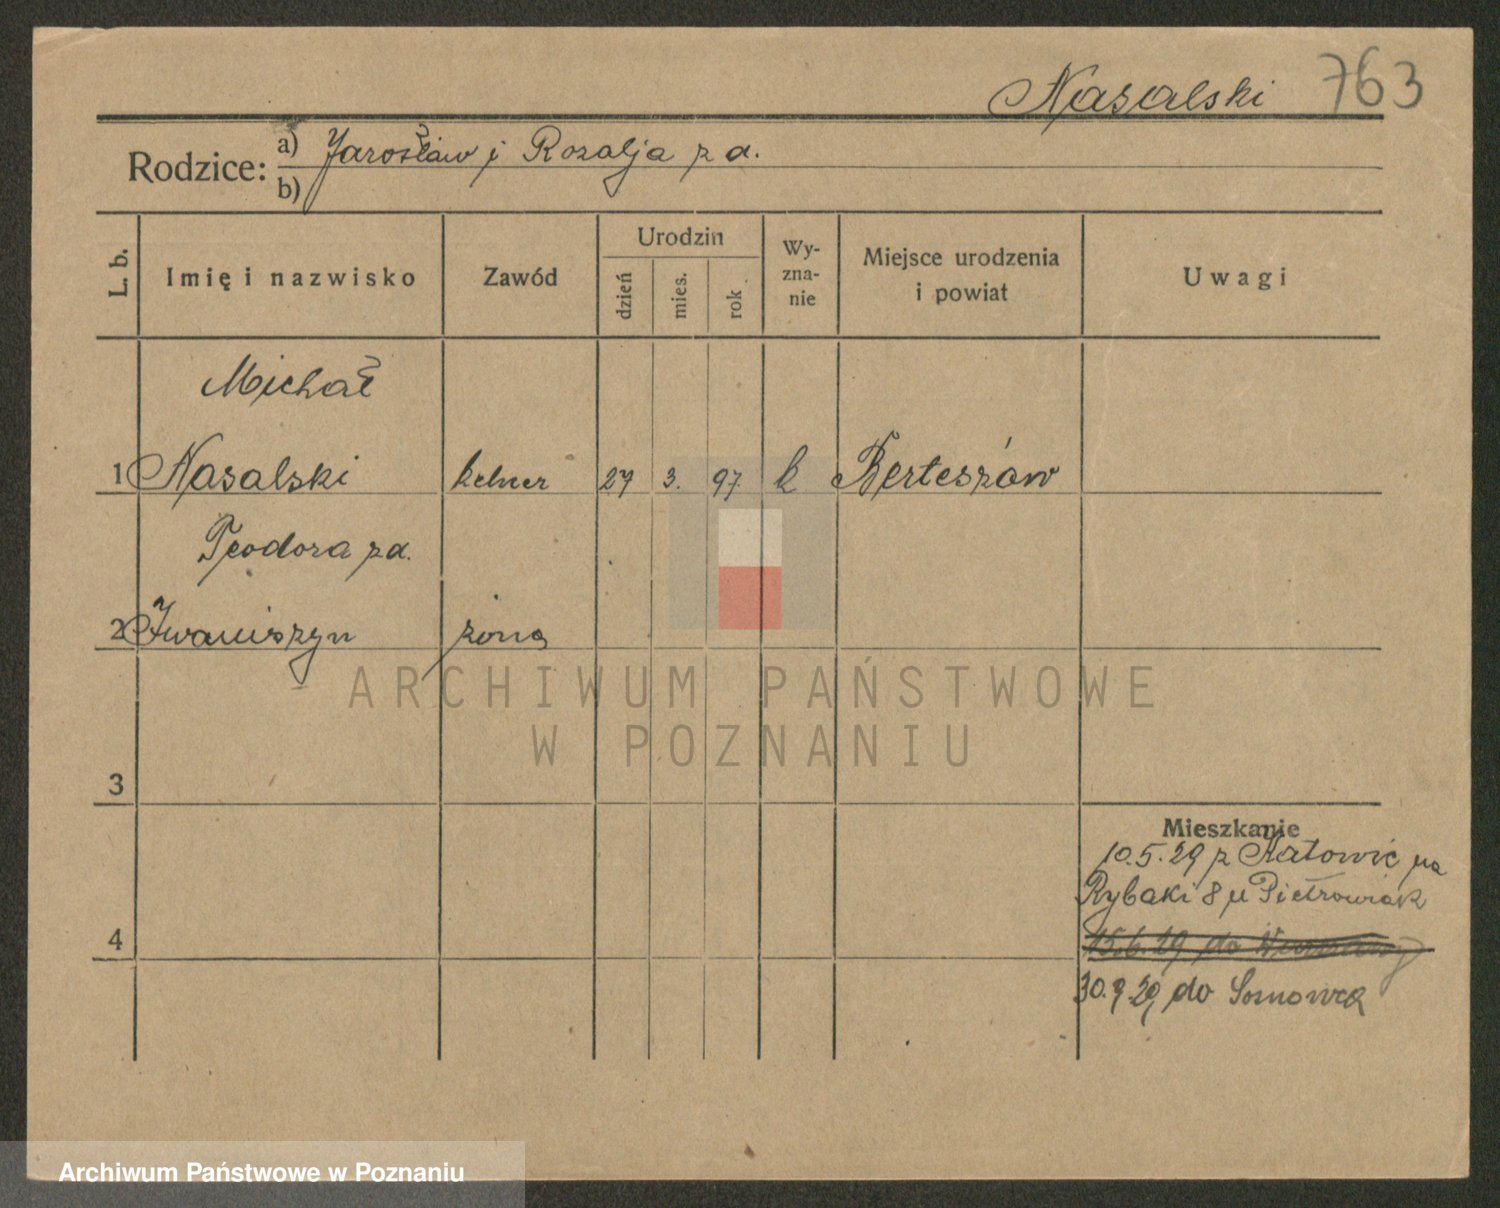 Nasalski 763
Rodzice: a) Jarosław i Rozalja z d.
b)
L. b.
Imię i nazwisko
Zawód
Urodzin
dzień
mies.
rok
Wy-
zna-
nie
Miejsce urodzenia
i powiat
Uwagi
Michał
1 Nasalski kelner 27 3. 97. k Berteszów
Teodora z d.
2 Iwaniszyn żona
ARCHIWUM PAŃSTWOWE
W POZNANIU
3
Mieszkanie
10.5.29 z Katowic na
Rybaki 8 u Pietrowiak
4
15.6.29 do
30.9.29 do Sosnowca
Archiwum Państwowe w Poznaniu